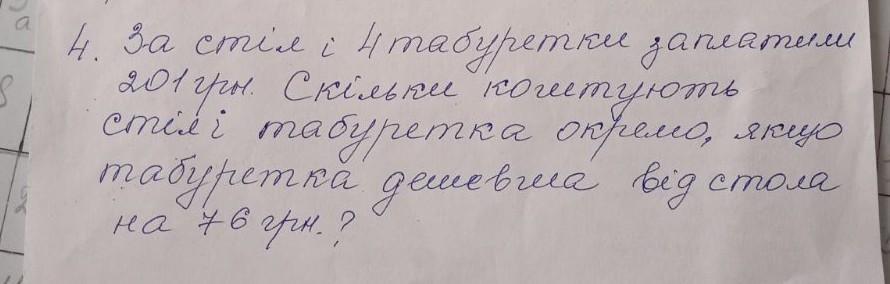 4. За стіл і 4 табуретки заплатили
201 грн. Скільки коштують
стіл і табуретка окремо, якщо
табуретка дешевша від стола
на 76 грн.?